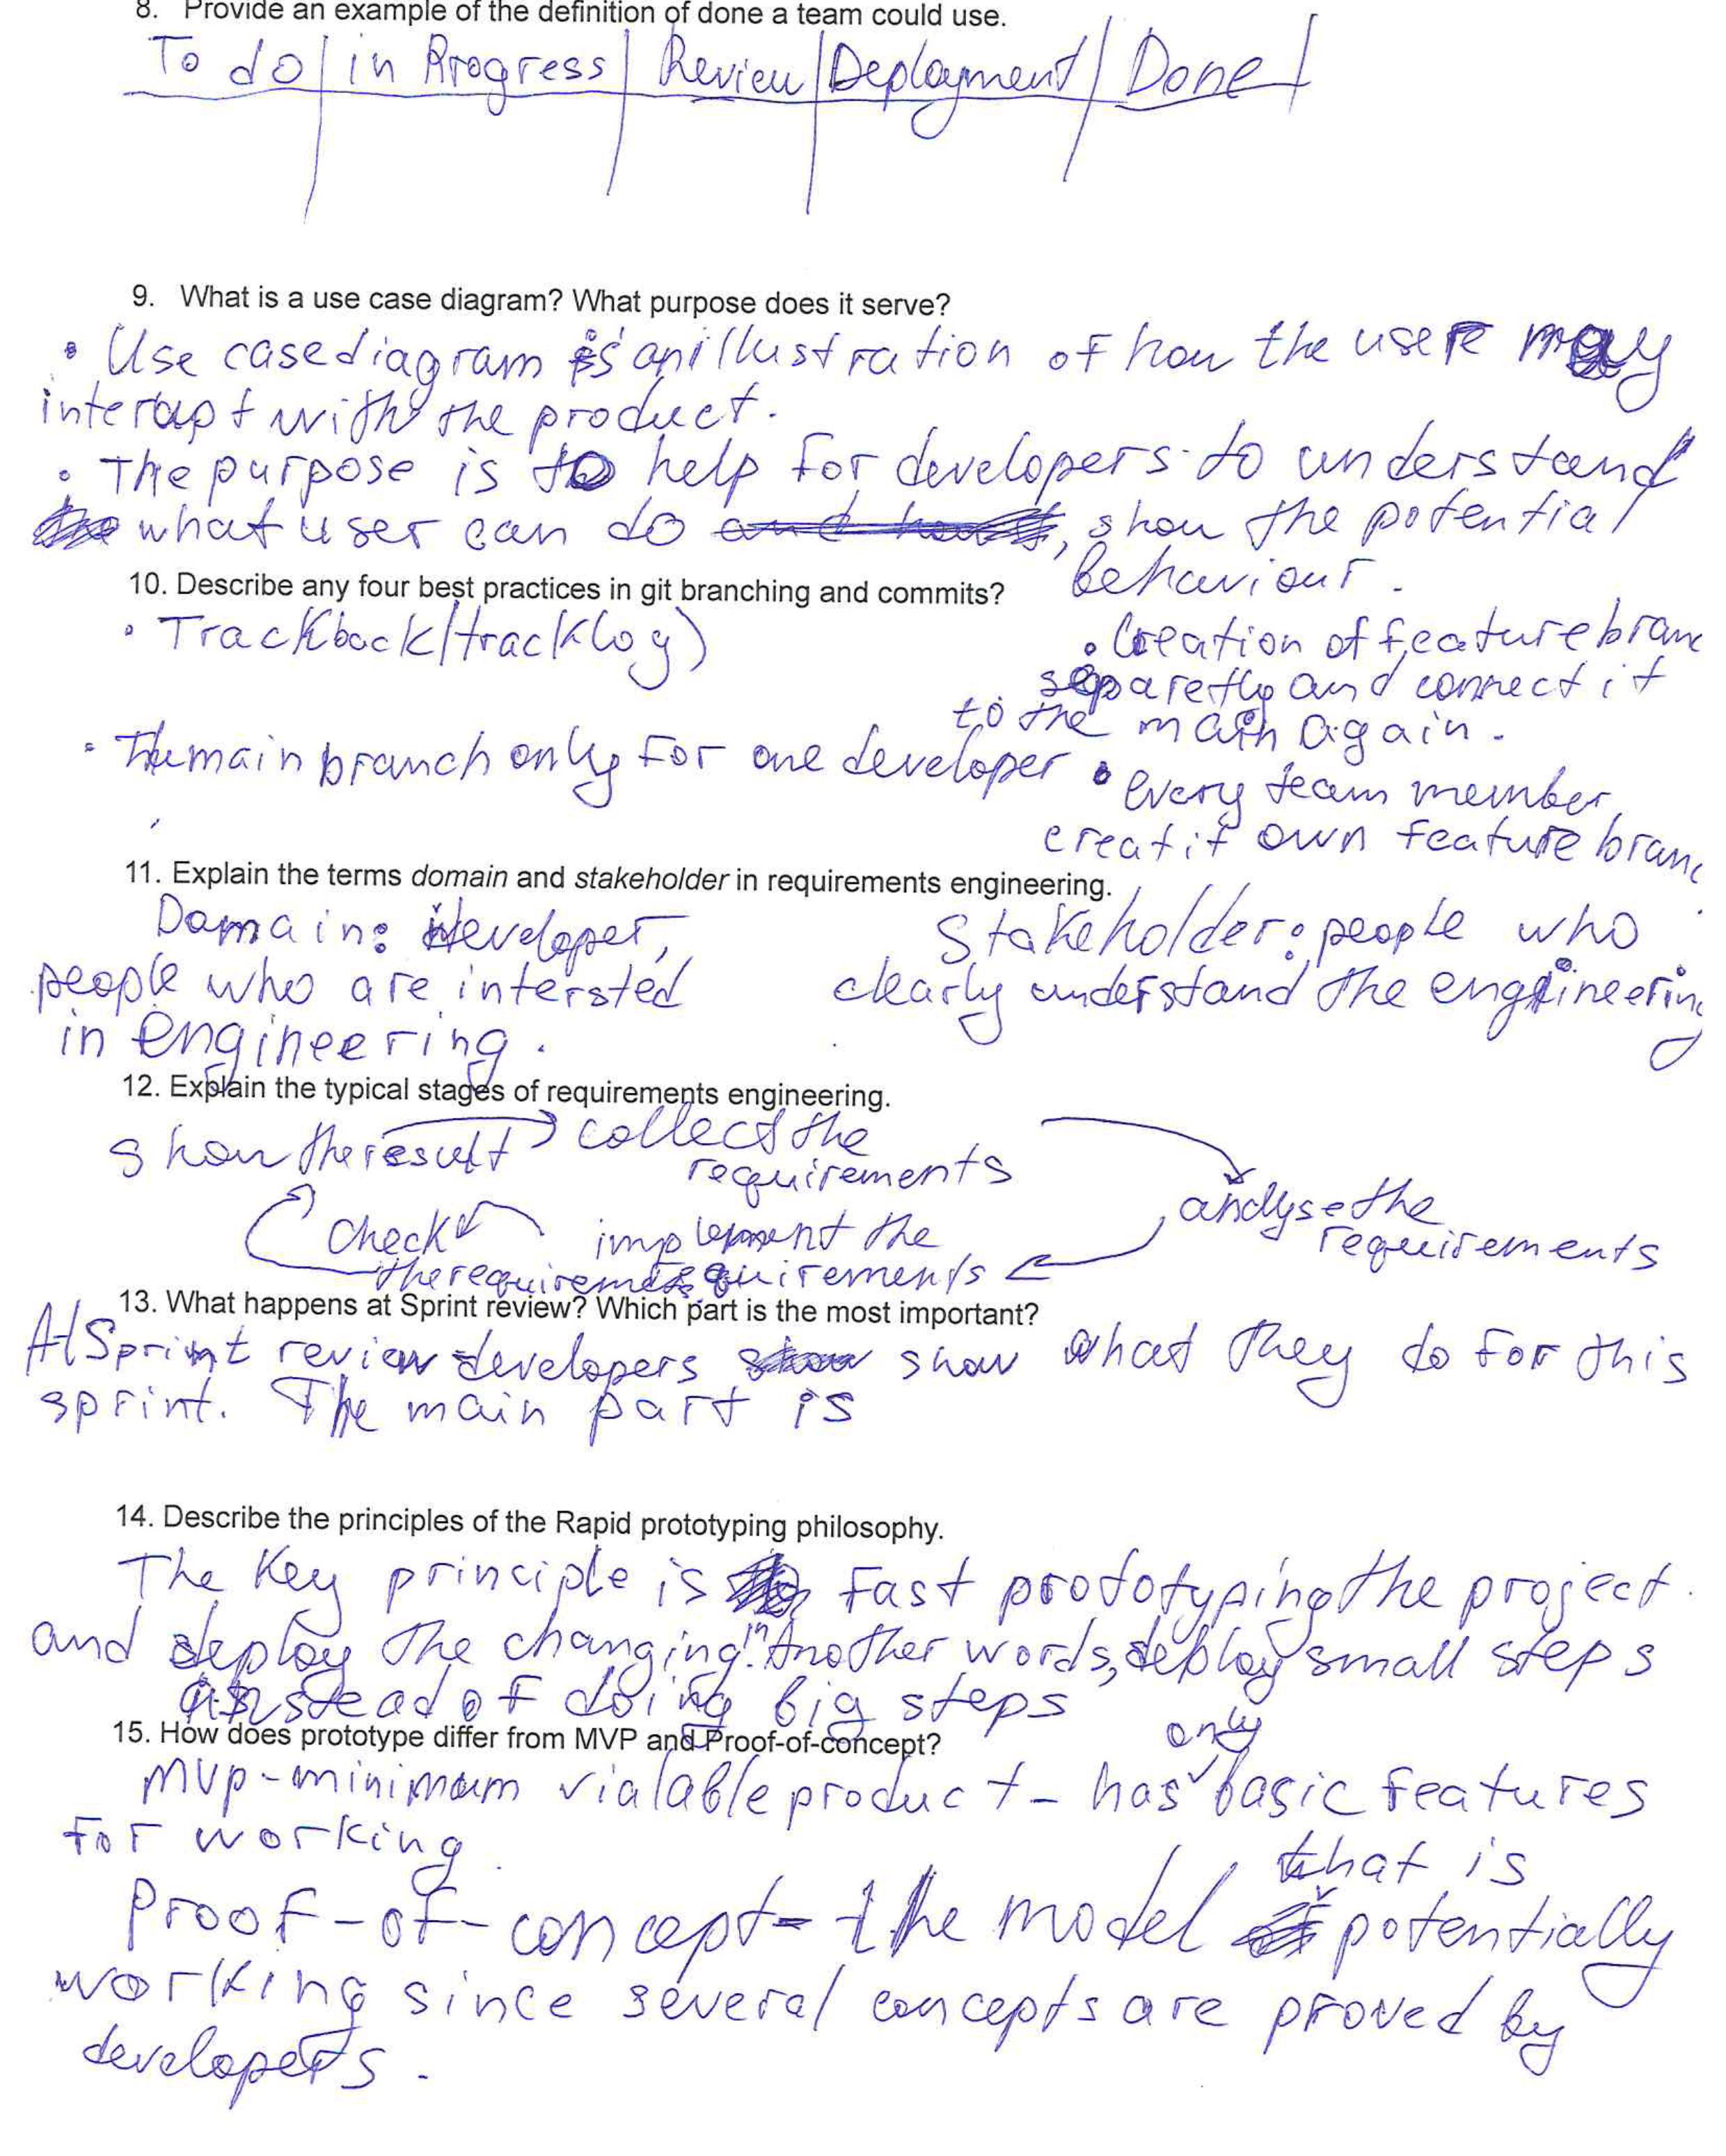 8. Provide an example of the definition of done a team could use.
To do | in Progress | Review | Deployment | Done |
9. What is a use case diagram? What purpose does it serve?
• Use case diagram is an illustration of how the user may
interact with the product.
• The purpose is to help for developers to understand
what user can do , show the potential
behaviour.
10. Describe any four best practices in git branching and commits?
• Trackback/tracklog)
• The main branch only for one developer
• Creation of feature branc
separetly and connect it
to the main again.
• every team member
creat it own feature branc
11. Explain the terms domain and stakeholder in requirements engineering.
Domain: developer,
people who are intersted
in engineering.
Stakeholder: people who
clearly understand the engineering
12. Explain the typical stages of requirements engineering.
show the result
collect the
requirements
analyse the
requirements
implement the
requirements
check
the requirements
13. What happens at Sprint review? Which part is the most important?
At Sprint review developers show what they do for this
sprint. The main part is
14. Describe the principles of the Rapid prototyping philosophy.
The key principle is fast prototyping the project
and deploy the changing. In another words, deploy small steps
instead of doing big steps
15. How does prototype differ from MVP and Proof-of-concept?
MVP - minimum vialable product - has only basic features
for working
Proof-of-concept - the model that is potentially
working since several concepts are proved by
developers.